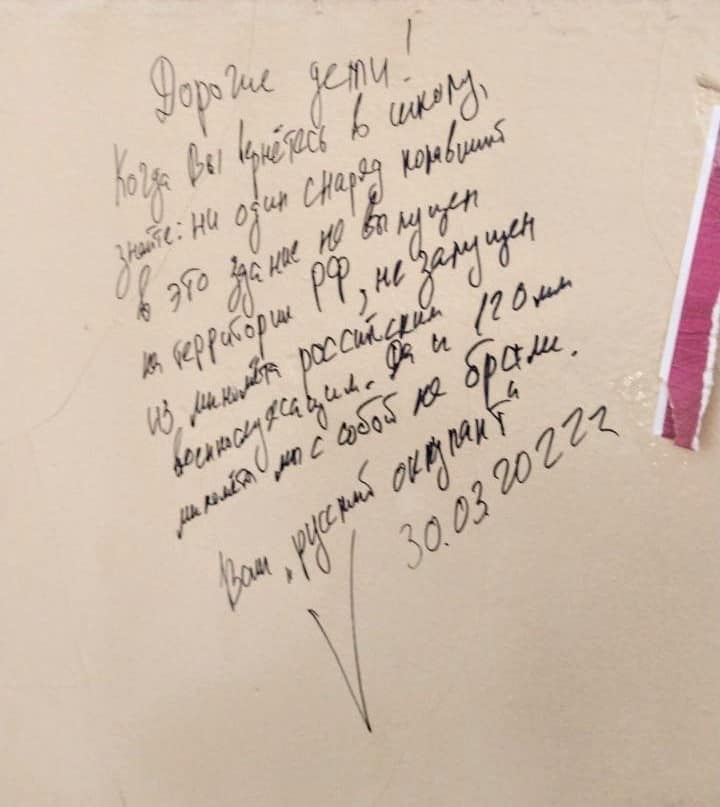 Дорогие дети!
Когда Вы вернётесь в школу,
знайте: ни один снаряд попавший
в это здание не выпущен
на территории РФ, не запущен
из миномёта российским
военнослужащим. Да и 120 мм
миномёта мы с собой не брали.
Ваш „русский оккупант“
30.03.2022г